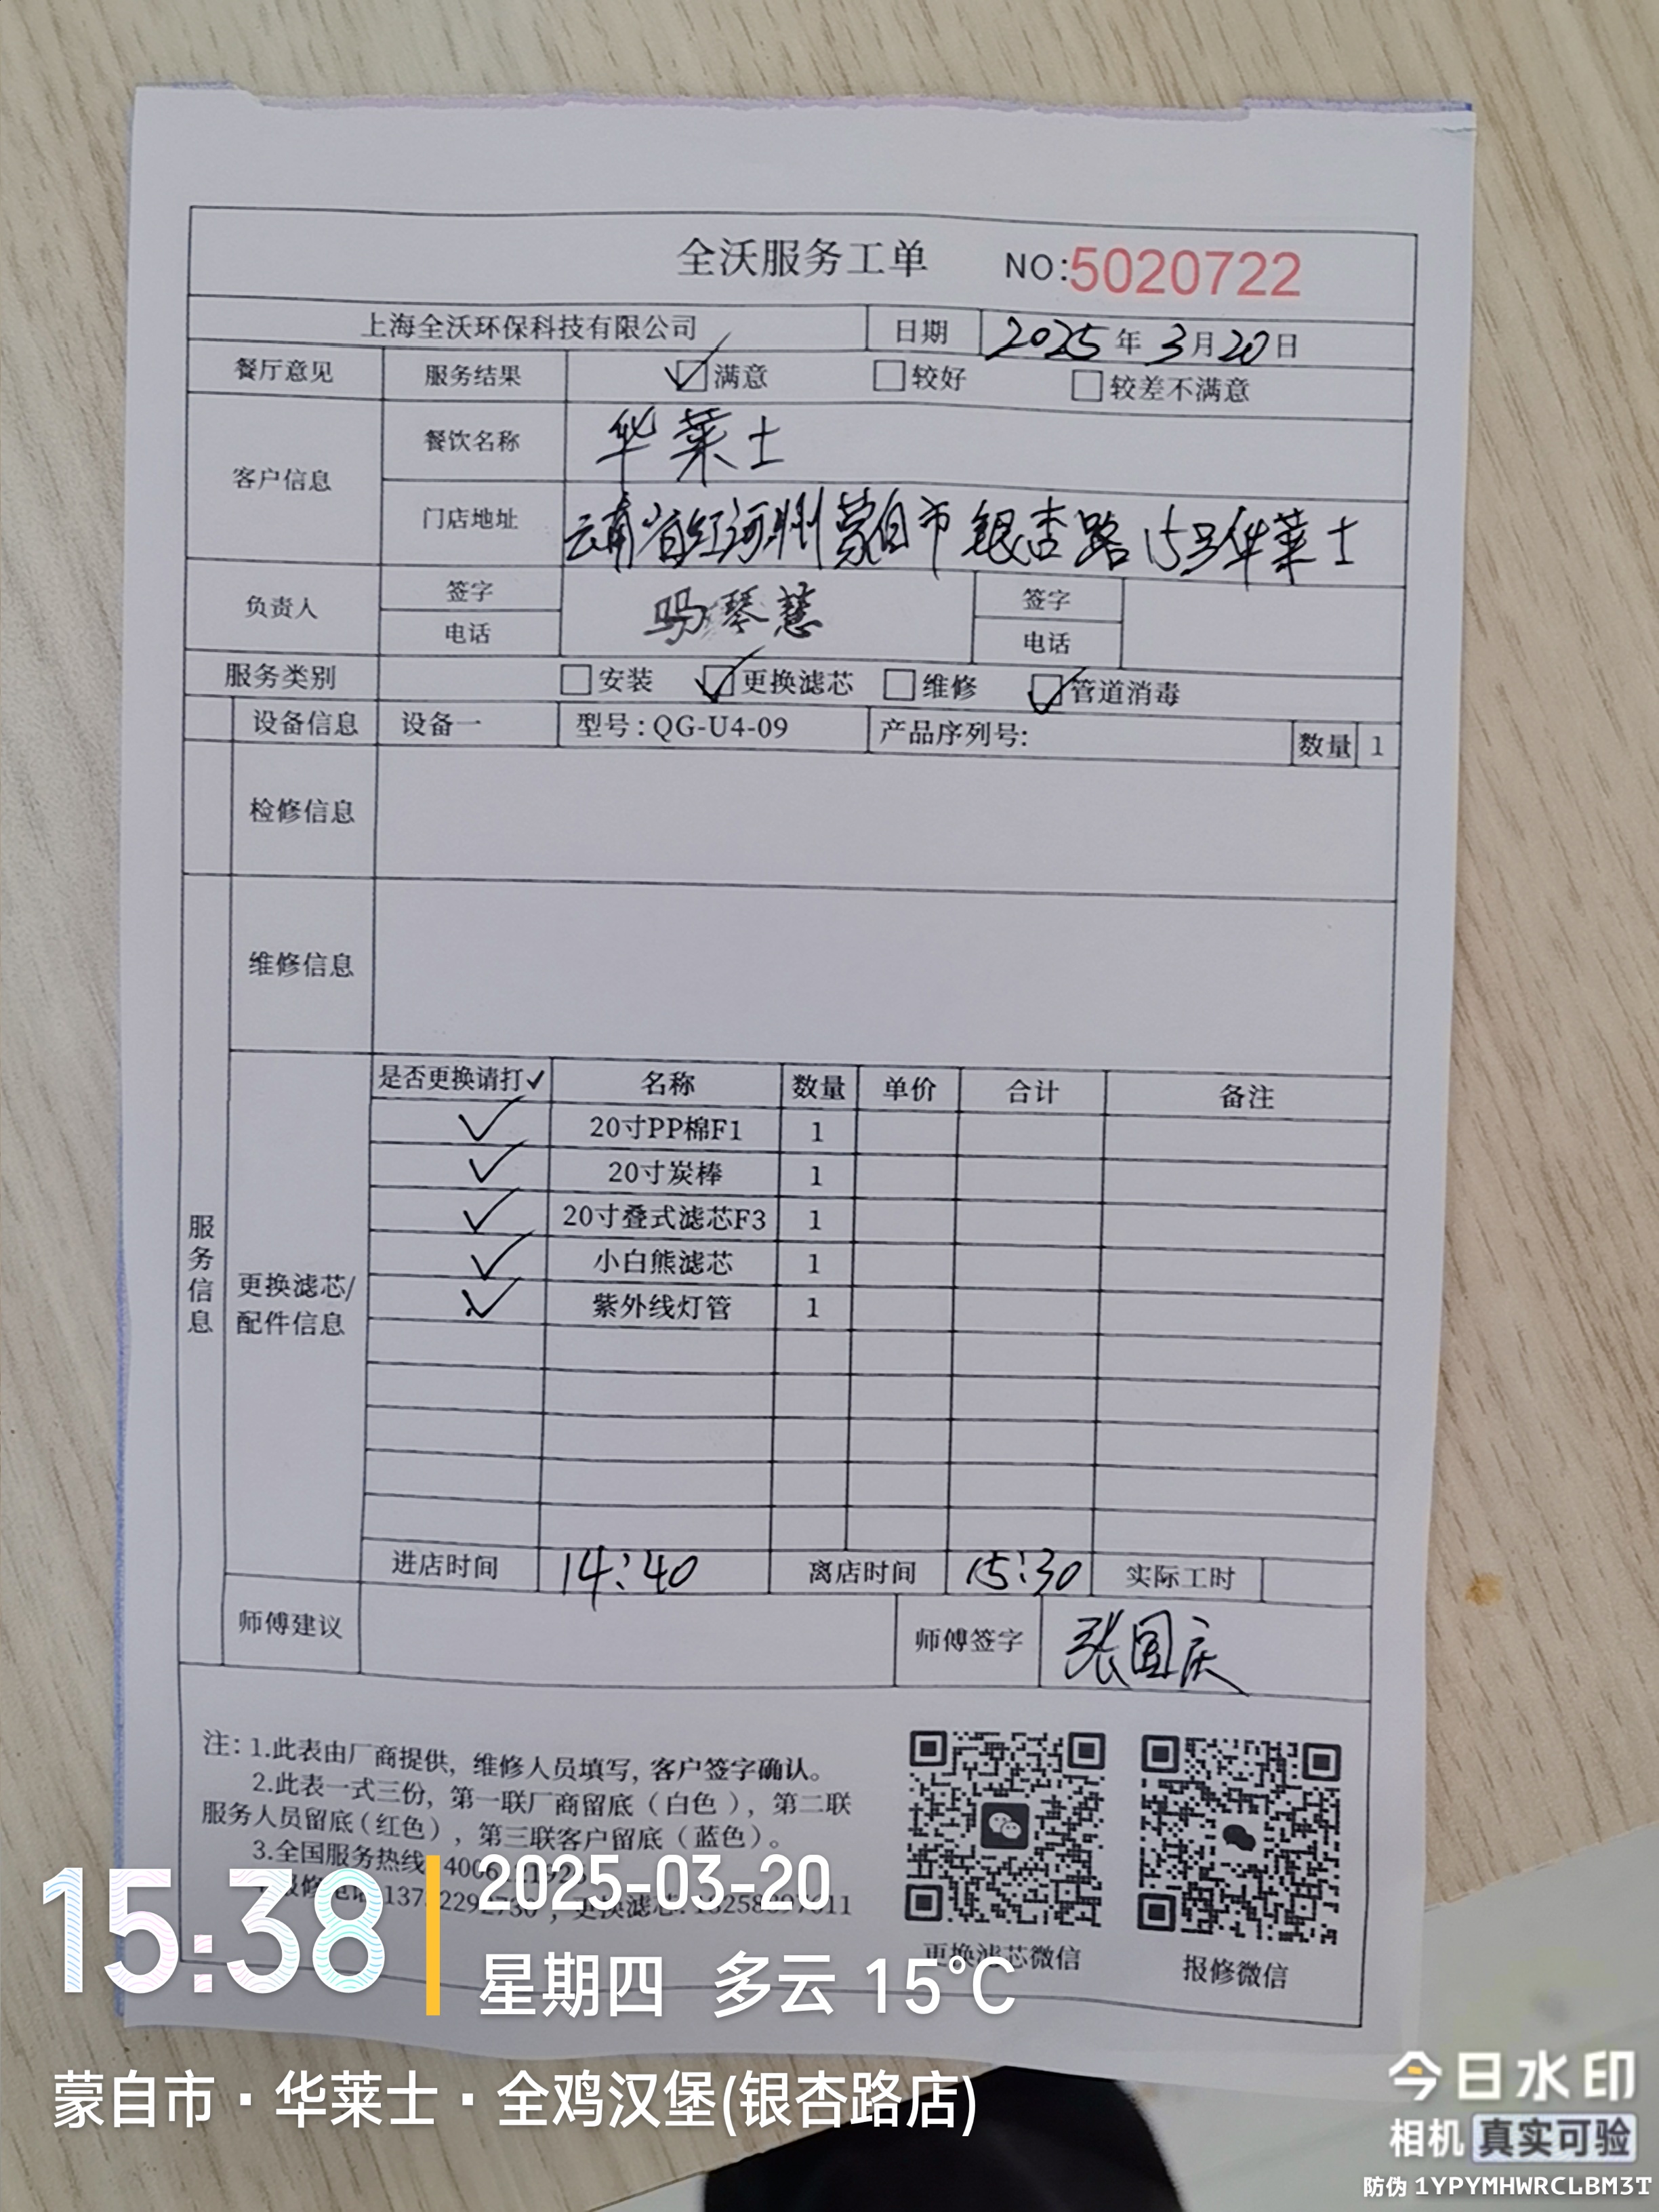 全沃服务工单 NO:5020722
上海全沃环保科技有限公司 日期 2025年3月20日
餐厅意见 服务结果 ☑满意 □较好 □较差不满意
客户信息 餐饮名称 华莱士
门店地址 云南省红河州蒙自市银杏路15号华莱士
负责人 签字 马琴慧 签字
电话 电话
服务类别 □安装 ☑更换滤芯 □维修 ☑管道消毒
设备信息 设备一 型号:QG-U4-09 产品序列号: 数量 1
检修信息
维修信息
服务信息
更换滤芯/
配件信息
是否更换请打✓ 名称 数量 单价 合计 备注
✓ 20寸PP棉F1 1
✓ 20寸炭棒 1
✓ 20寸叠式滤芯F3 1
✓ 小白熊滤芯 1
✓ 紫外线灯管 1
进店时间 14:40 离店时间 15:30 实际工时
师傅建议 师傅签字 张国庆
注: 1.此表由厂商提供, 维修人员填写, 客户签字确认。
2.此表一式三份, 第一联厂商留底(白色), 第二联
服务人员留底(红色), 第三联客户留底(蓝色)。
3.全国服务热线
更换滤芯:
更换滤芯微信 报修微信
15:38
2025-03-20
星期四 多云 15°C
蒙自市·华莱士·全鸡汉堡(银杏路店)
今日水印
相机 真实可验
防伪 1YPYMHWRCLBM3T